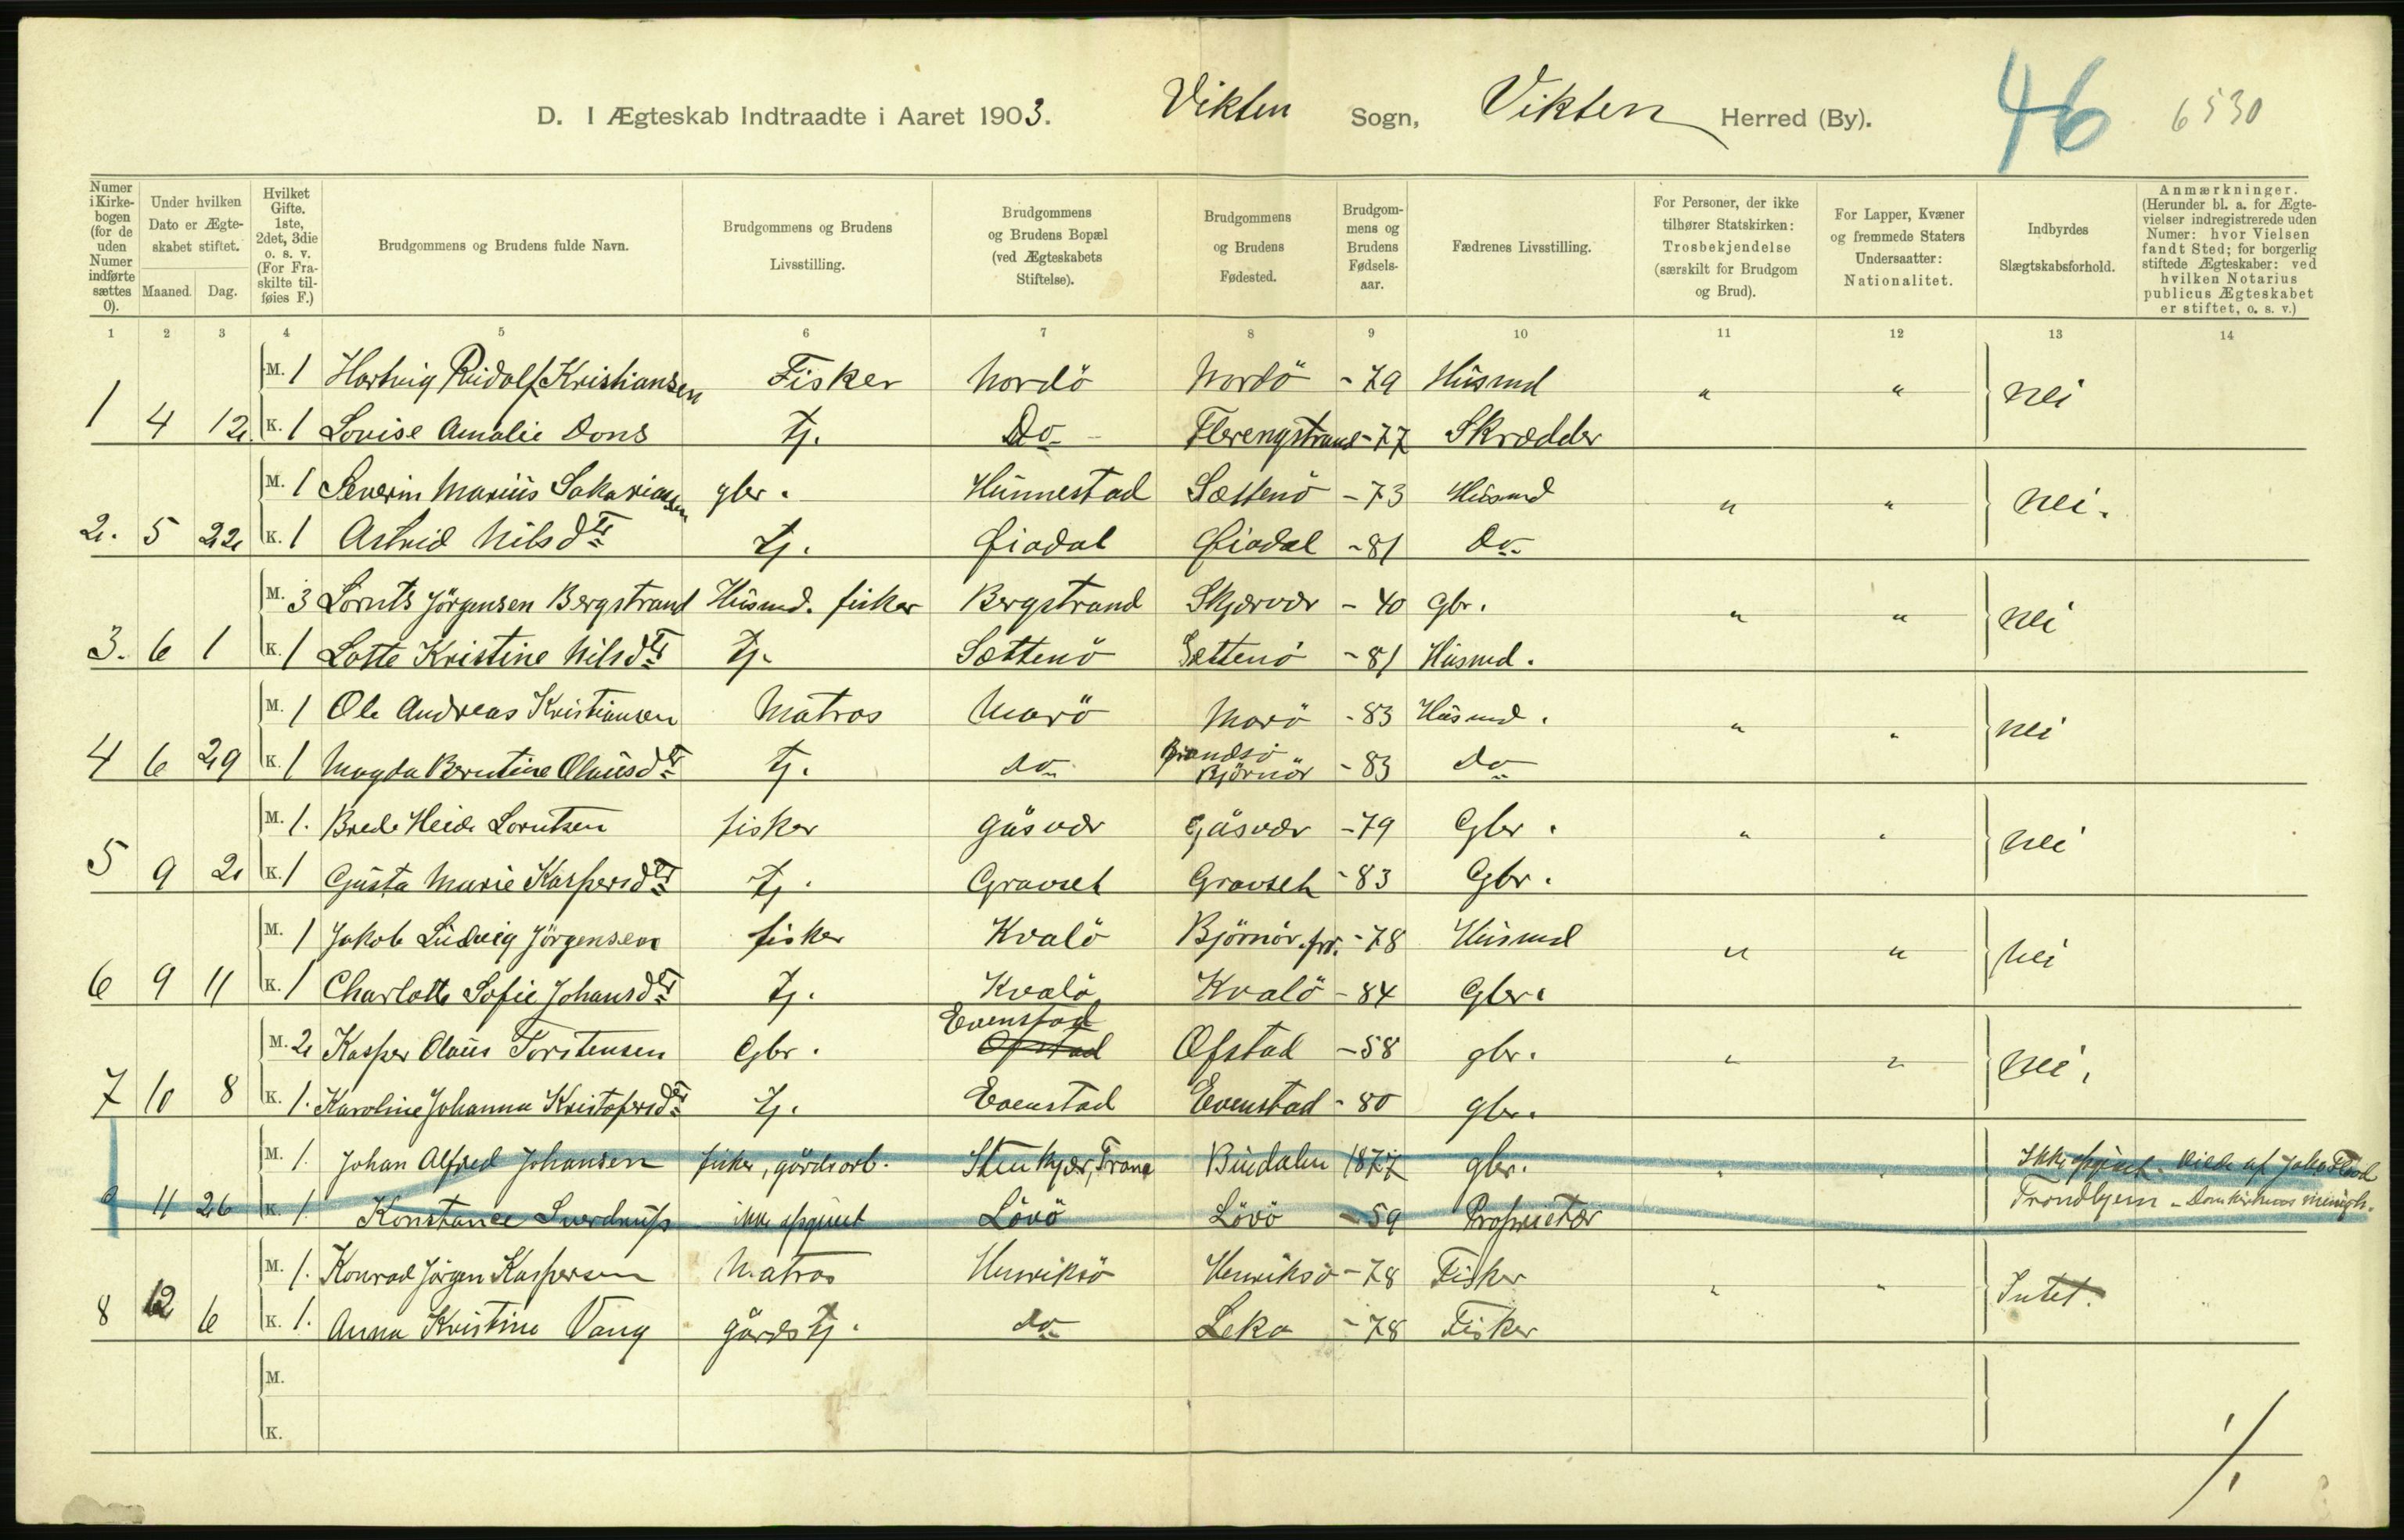 D. I Ægteskab Indtraadte i Aaret 1903. Vikten Sogn, Vikten Herred (By). 46 6530
Numer i Kirkebogen (for de uden Numer indførte sættes 0). Under hvilken Dato er Ægteskabet stiftet. Maaned. Dag. Hvilket Gifte. 1ste, 2det, 3die o. s. v. (For Fraskilte tilføies F.) Brudgommens og Brudens fulde Navn. Brudgommens og Brudens Livsstilling. Brudgommens og Brudens Bopæl (ved Ægteskabets Stiftelse). Brudgommens og Brudens Fødested. Brudgommens og Brudens Fødselsaar. Fædrenes Livsstilling. For Personer, der ikke tilhører Statskirken: Trosbekjendelse (særskilt for Brudgom og Brud). For Lapper, Kvæner og fremmede Staters Undersaatter: Nationalitet. Indbyrdes Slægtskabsforhold. Anmærkninger. (Herunder bl. a. for Ægtevielser indregistrerede uden Numer: hvor Vielsen fandt Sted; for borgerlig stiftede Ægteskaber: ved hvilken Notarius publicus Ægteskabet er stiftet, o. s. v.)
1 2 3 4 5 6 7 8 9 10 11 12 13 14
M. 1 Hartvig Rudolf Kristiansen Fisker Nordö Nordö - 79 Husmd " " nei
1 4 12. K. 1 Lovise Amalie Dons tj. Do Flerengstrand - 77 Skrædder
M. 1 Severin Marius Sakariassen gbr. Hunnestad Sættenö - 73 Husmd " " nei.
2. 5 22 K. 1 Astrid Nilsdtr tj. Qiadal Qiadal - 81 Do
M. 3 Lornts Jörgensen Bergstrand Husmd. fisker Bergstrand Skjærvær - 40 Gbr. " " nei
3. 6 1 K. 1 Lotte Kristine Nilsdtr tj. Sættenö Sættenö - 81 Husmd.
M. 1 Ole Andreas Kristiansen Matros Marö Marö - 83 Husmd. " " nei
4 6 29 K. 1 Magda Berntine Olausdtr tj. do Björnör - 83 Do
M. 1. Brede Heide Lorntsen fisker Gåsvær Gåsvær - 79 Gbr. " " nei
5 9 2 K. 1 Gusta Marie Kaspersdtr tj. Gravseh Gravseh - 83 Gbr.
M. 1 Jakob Ludvig Jörgensen fisker Kvalö Björnör. - 78 Husmd " " nei
6 9 11 K. 1 Charlotte Sofie Johansdtr tj. Kvalö Kvalö - 84 Gbr.
Evenstad
M. 2 Kasper Olaus Torstensen Gbr. Ofstad Ofstad - 58 gbr. " " nei.
7 10 8 K. 1. Karoline Johanna Kristofersdtr tj. Evenstad Evenstad - 80 gbr.
M. 1. Johan Alfred Johansen fisker, gårdsarb. Stenkjær, Trana Bindalen 1877 gbr. " " Ikke opgivet. Viede af
9 11 26 K. 1. Konstance Sverdrup ikke opgivet Lövö Lövö - 59 Proprietær Trondhjem - Domkirkens menigh.
M. 1. Konrad Jörgen Kaspersen Matros Henriksö Henriksö - 78 Fisker " " Intet.
8 12 6 K. 1. Anna Kristine Vang gårdstj. do Leka - 78 Fisker
M.
K.